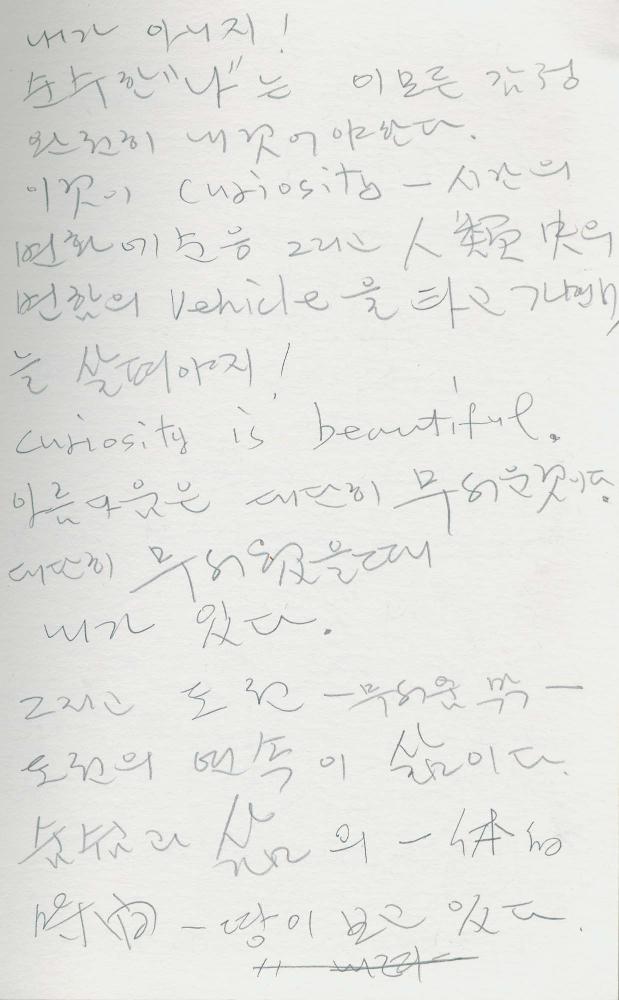 내가 아니지!
순수한 "나"는 이 모든 감정
완전히 내것이어야한다.
이것이 curiosity – 시간의
변화에 순응 그리고 人類史의
변함의 Vehicle을 타고
를 살펴야지!
curiosity is beautiful.
아름다움은 대단히 무서운것이다.
대단히 무서웠을때
내가 있다.
그리고 도전 – 무서움 –
도전의 연속이 삶이다.
순수와 삶의 一体的
時間 – 땅이 보고 있다.